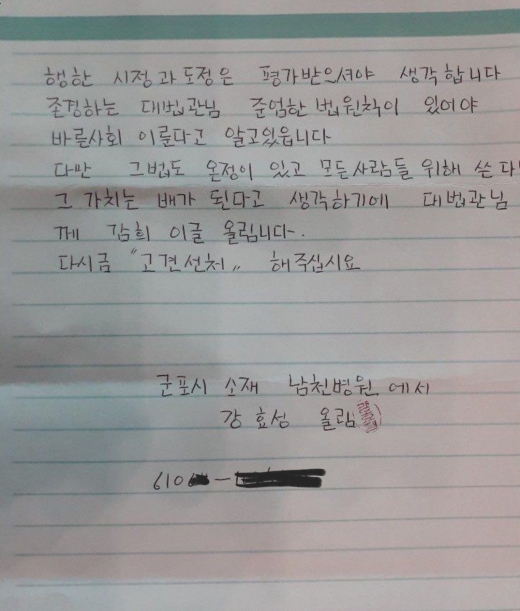 행한 시정과 도정은 평가받으셔야 생각합니다
존경하는 대법관님 준엄한 법원칙이 있어야
바른사회 이룬다고 알고있읍니다
다만 그법도 온정이 있고 모든사람들 위해 쓴다면
그 가치는 배가 된다고 생각하기에 대법관님
께 감희 이글 올립니다.
다시금 "고견선처" 해주십시요
군포시 소재 남천병원에서
강효성 올림
610